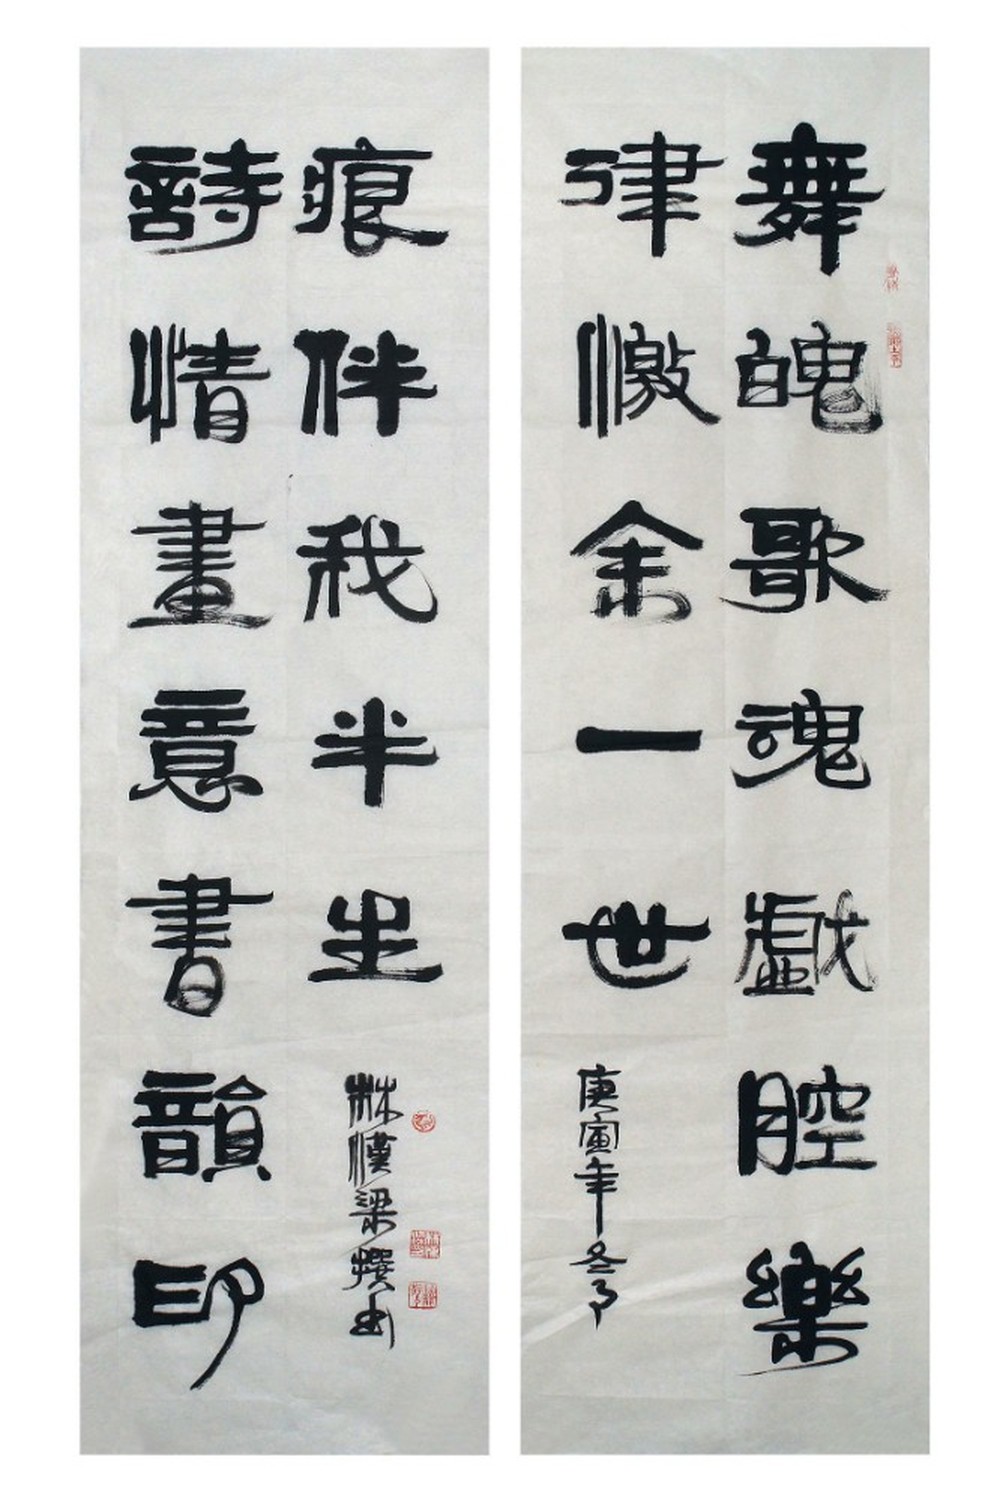 舞魄歌魂戲腔樂
律憿余一世
庚寅年冬月
詩情畫意書韻印
痕伴我半生
林漢梁撰書